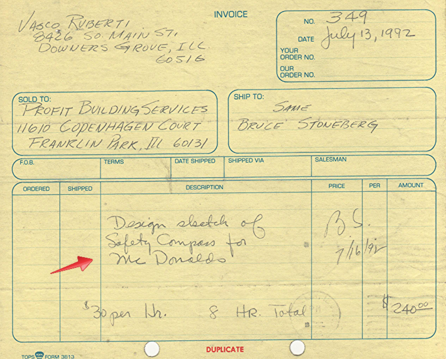 VASCO RUBERTI
8426 SO. MAIN ST.
DOWNERS GROVE, ILL
60516
INVOICE
NO. 349
DATE July 13, 1992
YOUR ORDER NO.
OUR ORDER NO.
SOLD TO:
PROFIT BUILDING SERVICES
11610 COPENHAGEN COURT
FRANKLIN PARK, Ill 60131
SHIP TO:
SAME
BRUCE STONEBERG
F.O.B. TERMS DATE SHIPPED SHIPPED VIA SALESMAN
ORDERED SHIPPED DESCRIPTION PRICE PER AMOUNT
Design sketch of
Safety Compass for
Mc Donalds
B S.
7/16/92
$30 per Hr. 8 HR. Total $240.00
TOPS FORM 3613
DUPLICATE